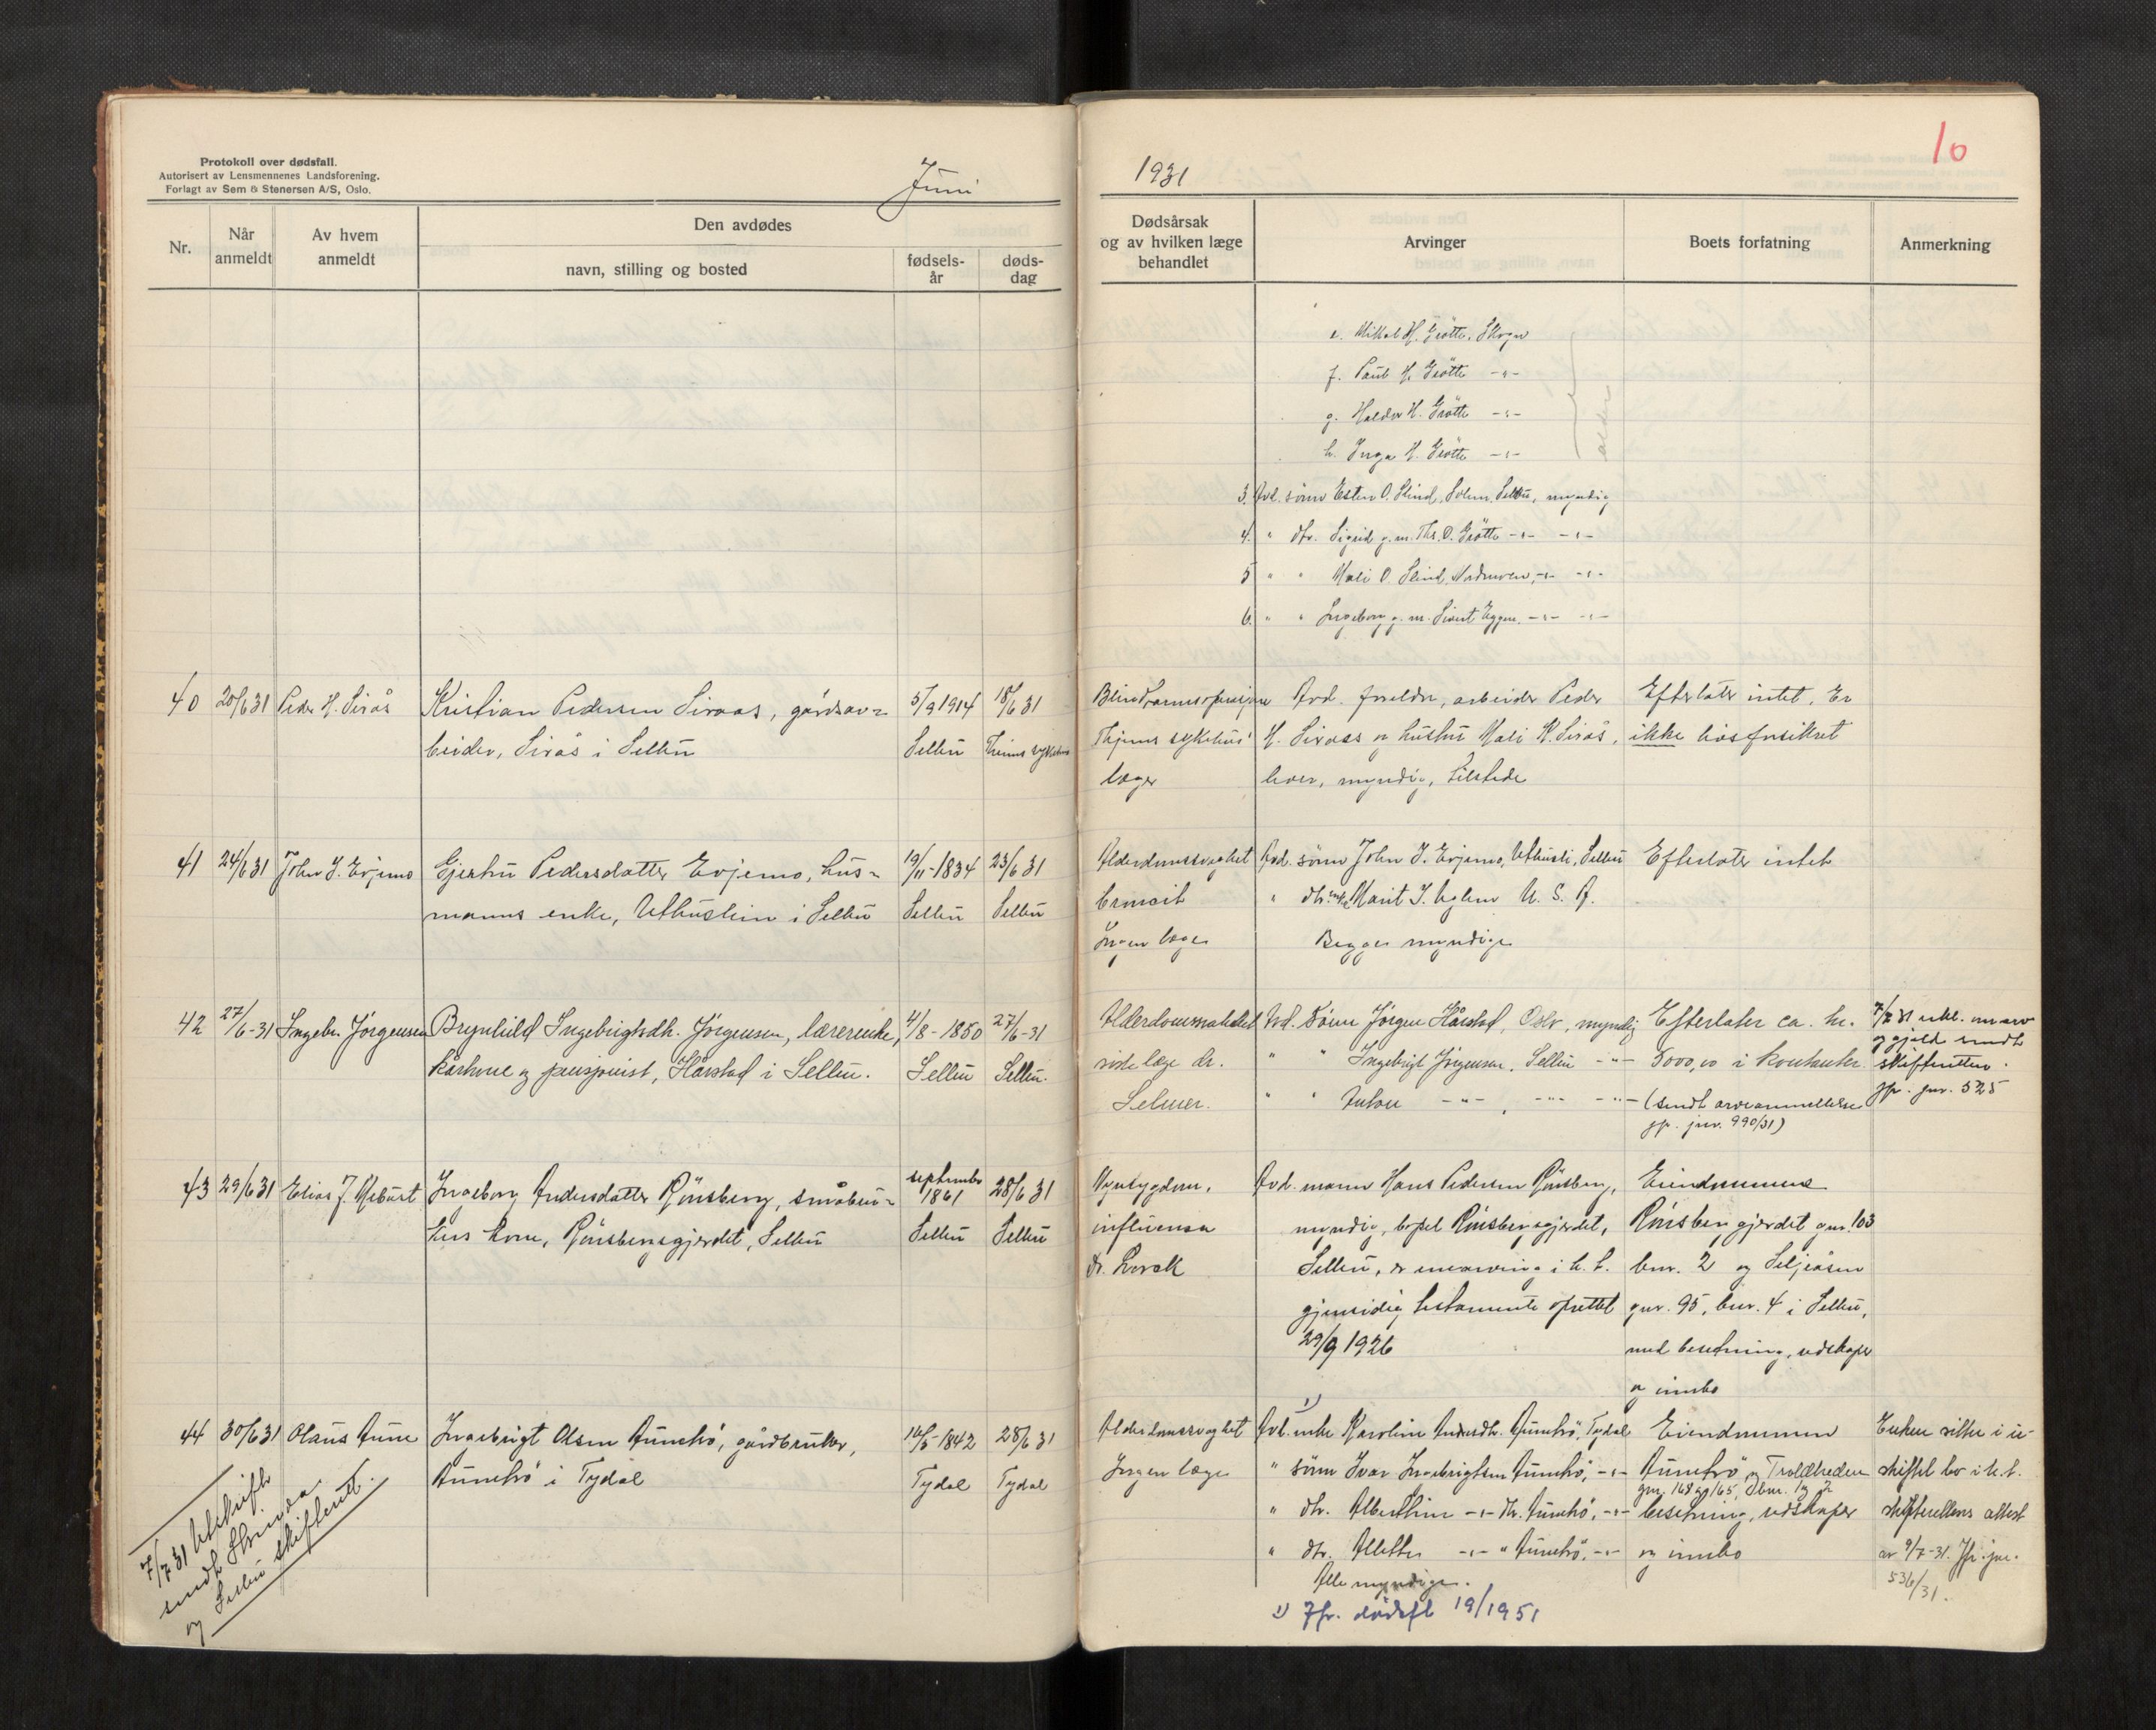 Protokoll over dødsfall.
Autorisert av Lensmennenes Landsforening.
Forlagt av Sem & Stenersen A/S, Oslo.
Juni
Nr.
Når anmeldt
Av hvem anmeldt
Den avdødes
navn, stilling og bosted
fødsels-år
døds-dag
40 20/6 31 Peder H. Sirås Kristian Pedersen Siraas, gårdsar- 5/9 1914 18/6 31
beider, Sirås i Selbu Selbu
41 24/6 31 John J. Evjemo Gjertru Pedersdatter Evjemo, hus- 19/11-1834 23/6 31
manns enke, Uthuslien i Selbu Selbu Selbu
42 27/6-31 Ingebr. Jørgensen Brynhild Ingebrigtsdtr. Jørgensen, lærerenke, 4/8-1850 27/6-31
kårkone og pensjonist, Hårstad i Selbu. Selbu Selbu.
43 29/6 31 Elias J. Ingeborg Andersdatter Rönsberg, småbru- september 1861 28/6 31
kers kone, Rönsbergsgjerdet, Selbu Selbu Selbu
44 30/6 31 Olaus Aune Ingebrigt Olsen Aunetrö, gårdbruker, 16/5-1842 28/6 31
Aunetrö i Tydal Tydal Tydal
7/7 31 Utskrift
sendt
og Selbu skifterett.
1931
10
Dødsårsak og av hvilken læge behandlet
Arvinger
Boets forfatning
Anmerkning
e. Mikal H. Grøtte, Skogn
f. Paul H. Grøtte -"-
g. Haldor H. Grøtte -"-
h. Inga H. Grøtte -"-
alder
3. Avd. sönn Esten O. Slind, Selbu, myndig
4. " dtr. Sigrid g. m. O. Grøtte -"- -"-
5 " " Mali O. Slind, -"- -"-
6. " " Ingeborg g. m. Sivert Eggen -"- -"-
Avd. foreldre, arbeider Peder Efterlater intet. Er
sykehus' H. Siraas og hustru Mali Sirås, ikke livsforsikret
læger lever, myndig, tilstede
Alderdomssvaghet Avd. sönn John J. Evjemo, Uthusli, Selbu Efterlater intet
" dtr. enke Marit J. Uglem U. S. A.
Ingen læge Begge myndige
Avd. Sönn Jørgen Hårstad, Oslo, myndig Efterlater ca. kr. 7/7 31 erkl. om arv
siste læge dr. " " Ingebrigt Jörgensen, Selbu -"- 5000,00 i kontanter og gjeld sendt
Selmer. " " Anton -"-, -"- -"- (sendt arveanmeldelse skifteretten.
jfr. jnr. 990/31) Jfr. jnr. 525
Avd. mann Hans Pedersen Rönsberg, Eiendommene
influensa myndig, bopel Rönsbergsgjerdet, Rönsberggjerdet gnr. 103
dr. Selbu, er enearving i h. t. bnr. 2 og Seljeåsen
gjensidig testamente oprettet gnr. 95, bnr. 4 i Selbu,
29/9 1926 med besetning, redskaper
og innbo
1)
Alderdomssvaghet Avd. enke Karoline Andersdtr. Aunetrö, Tydal Eiendommen Enken sitter i u-
Ingen læge " sönn Ivar Ingebrigtsen Aunetrö, -"- Aunetrö og skiftet bo i h.t.
gnr. 168 og 165, bnr. 1 og 2
" dtr. Albertine -"- dtr. Aunetrö, -"- besetning, redskaper skifterettens attest
" dtr. -"- " Aunetrö, -"- og innbo av 9/7-31. Jfr. jnr.
Alle myndige. 536/31.
1) Jfr. dødsfl 19/1951